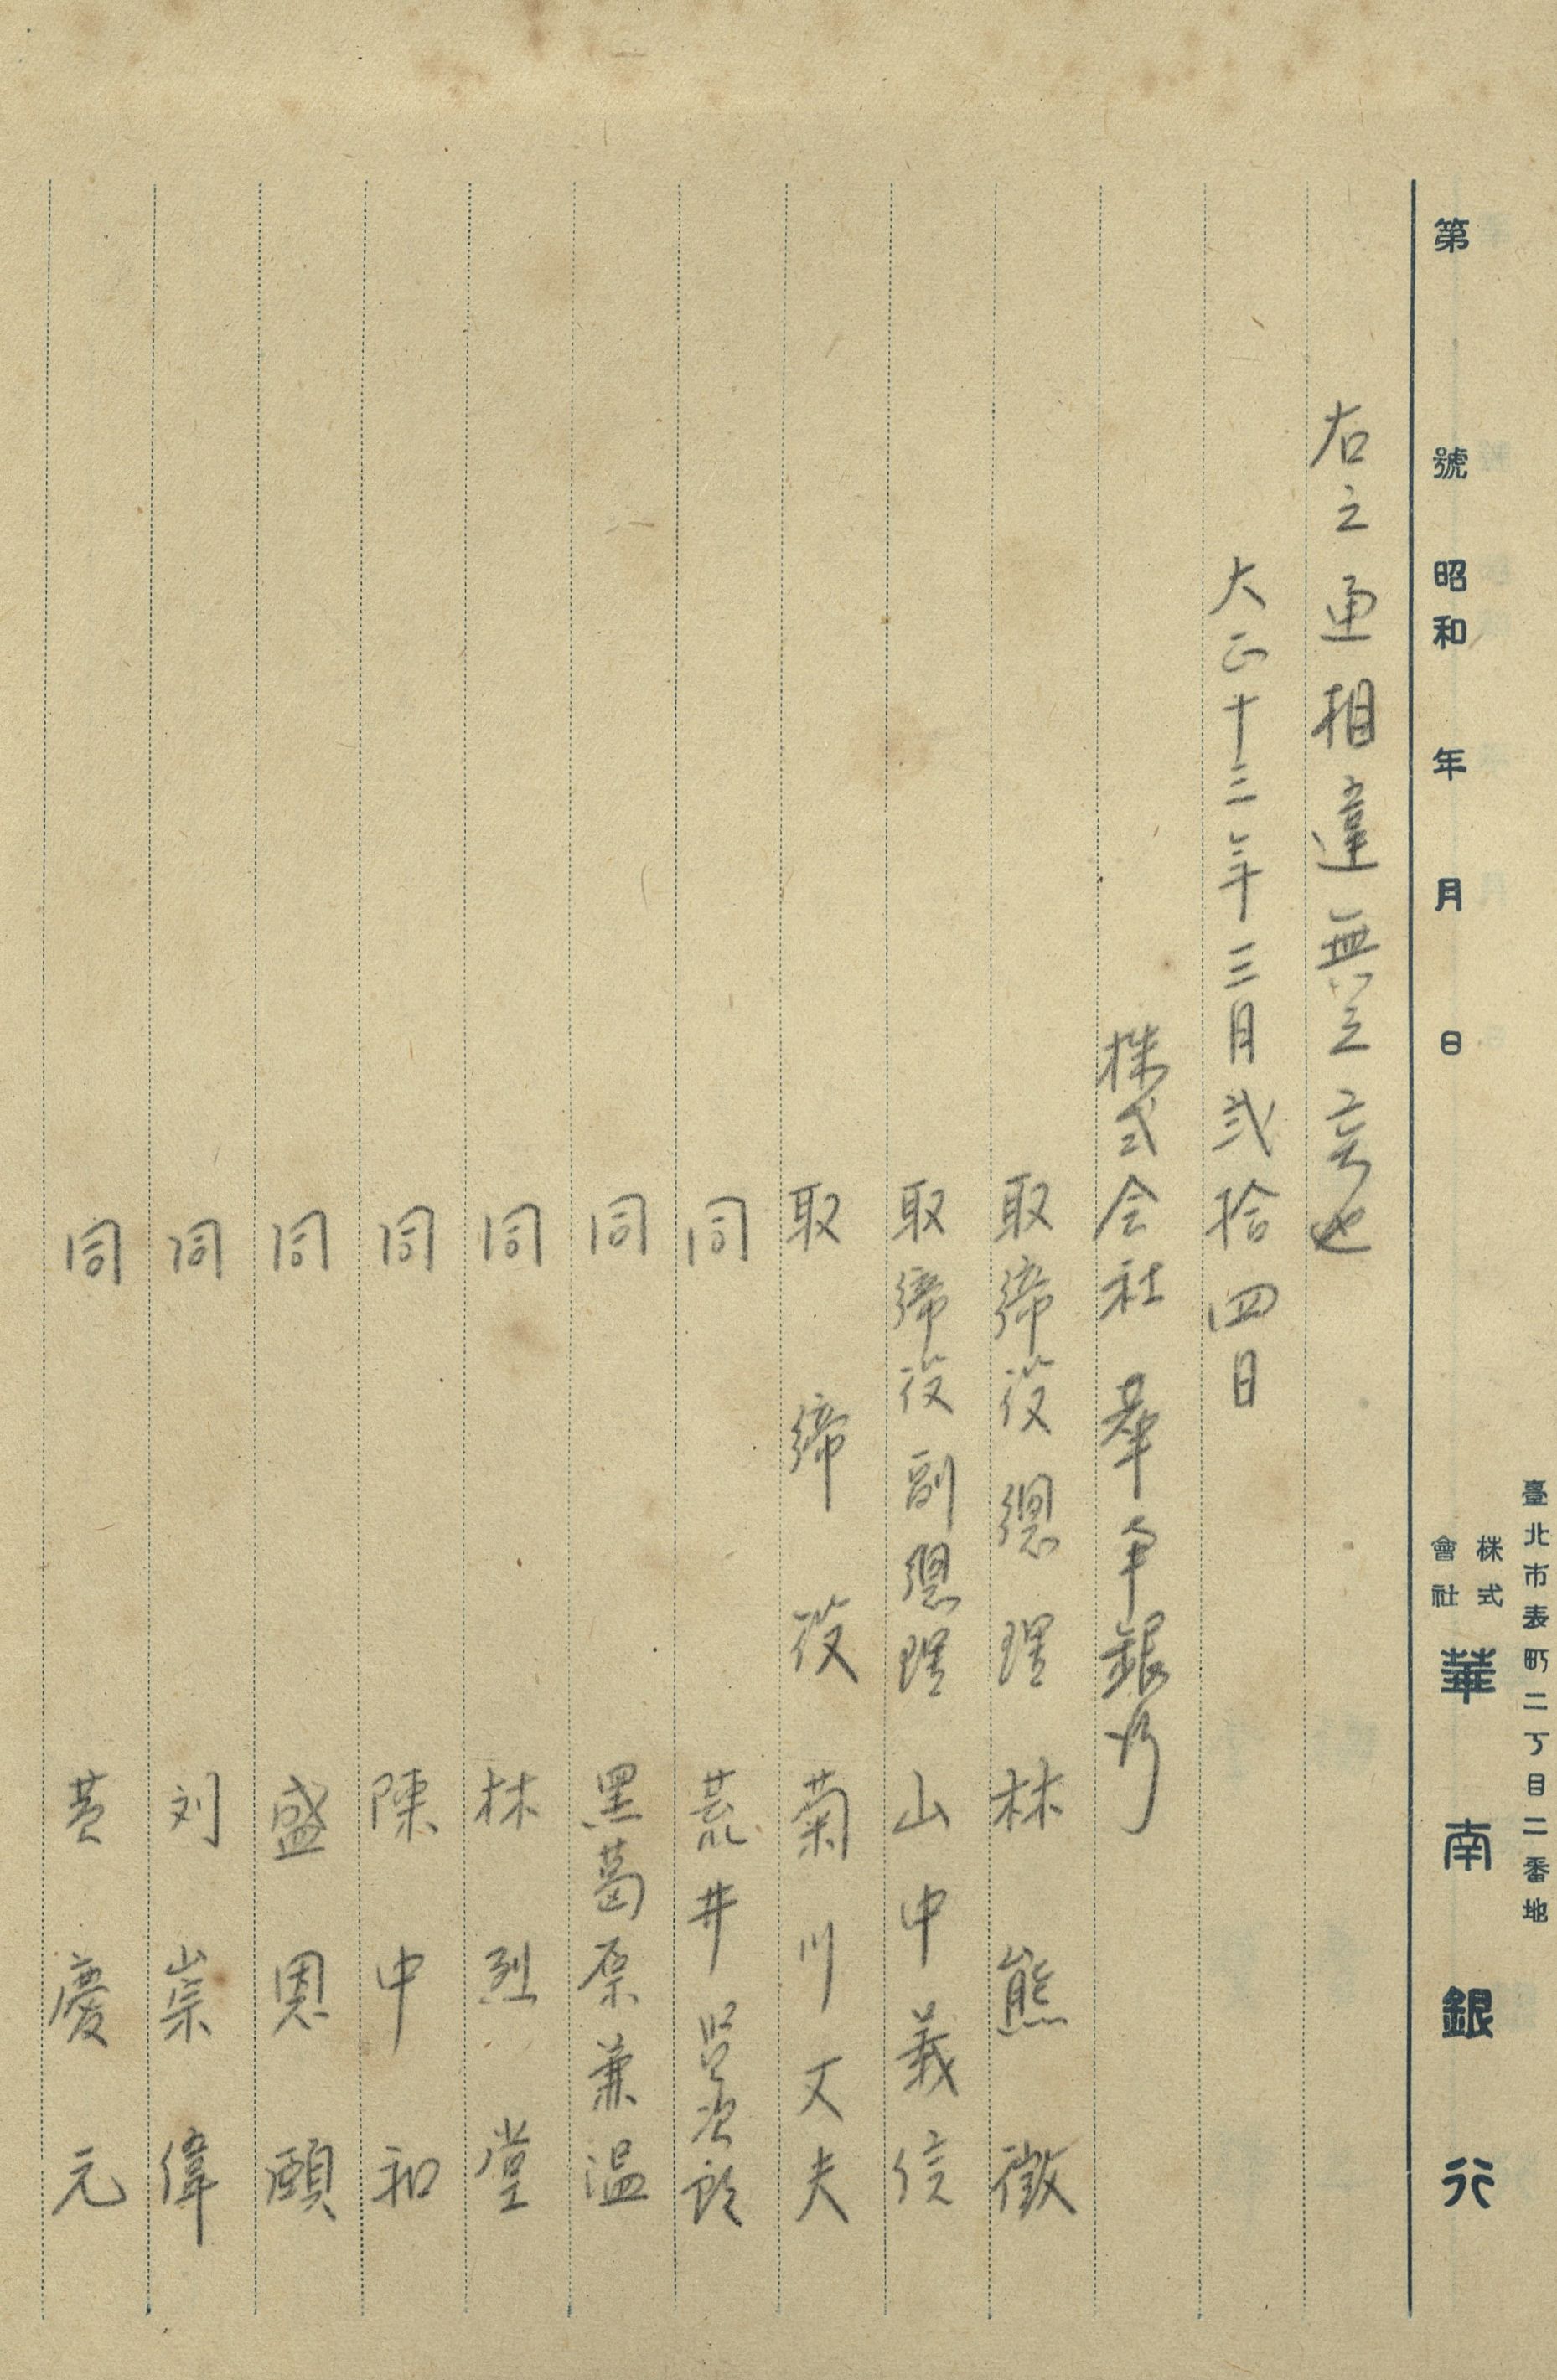 臺北市表町二丁目二番地
第 號 昭和 年 月 日 株式會社 華南銀行
右之通相違無之候也
大正十三年三月弐拾四日
株式会社 華南銀行
取締役總理 林熊徴
取締役副總理 山中義信
取締役 菊川丈夫
同 荒井 次郎
同 黑葛原兼温
同 林烈堂
同 陳中和
同 盛恩頤
同 刘崇偉
同 黄慶元